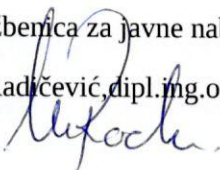 žbenica za javne nab
adičević,dipl.ing.o